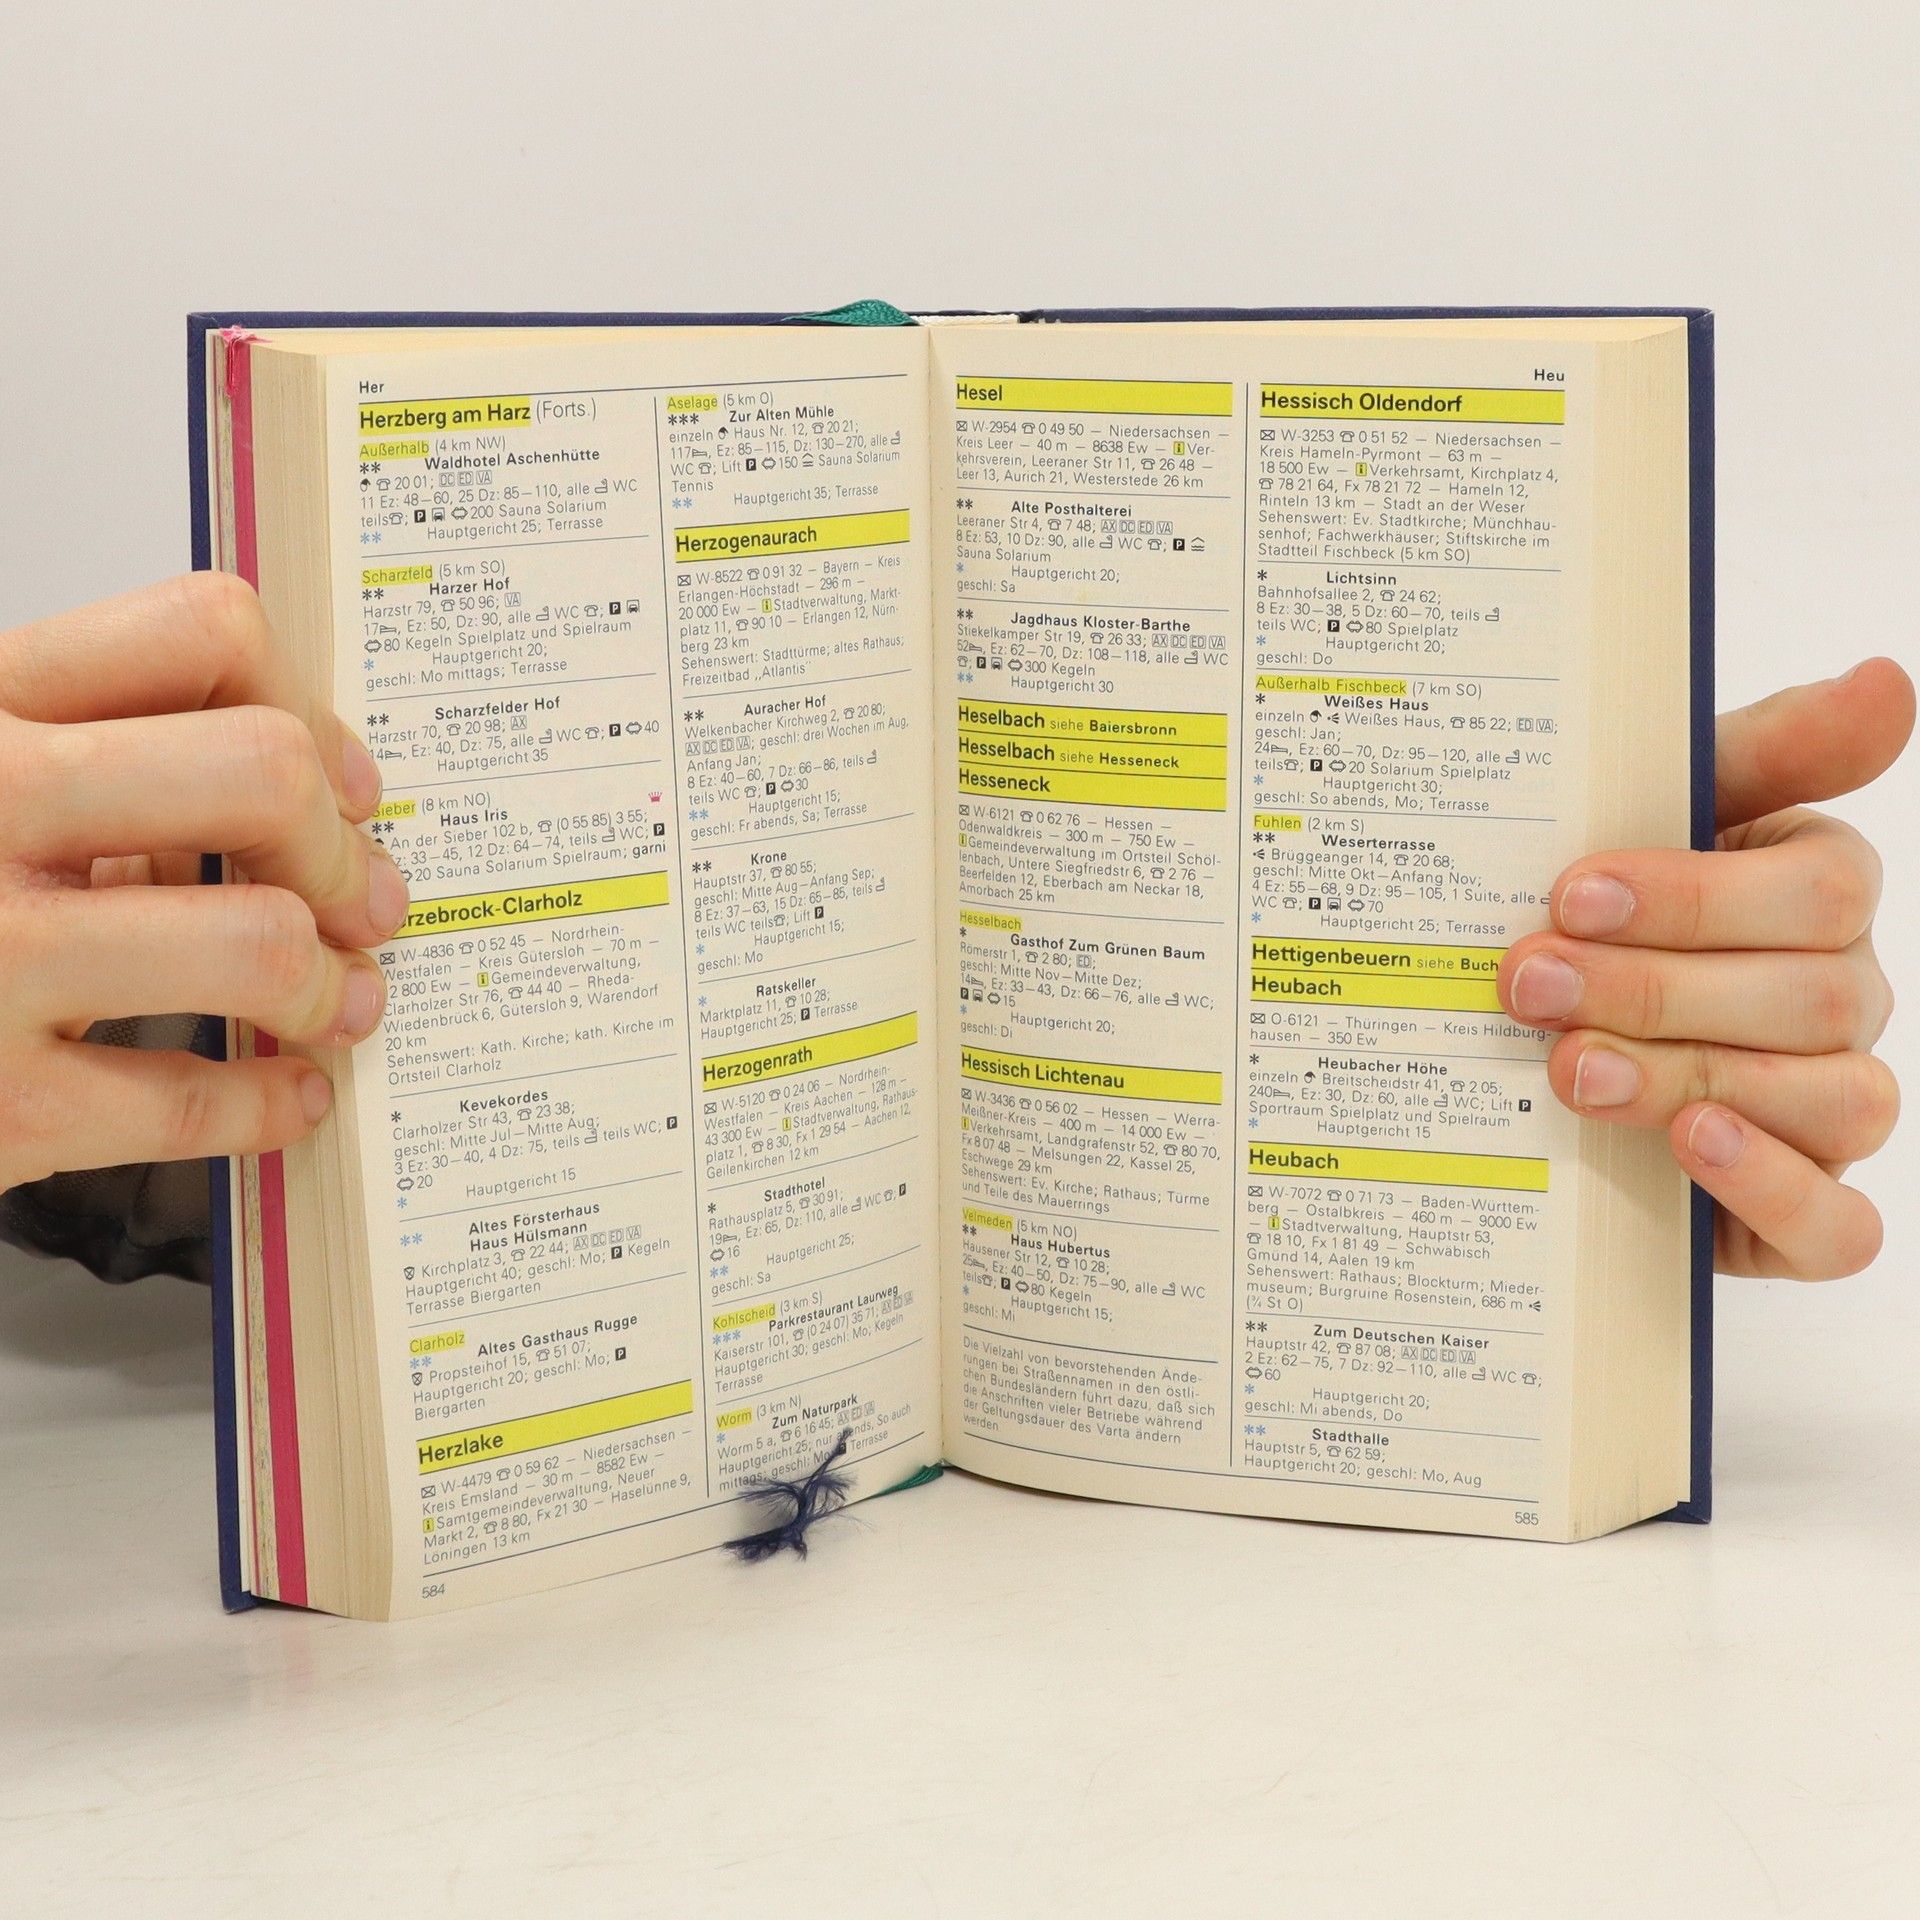 Her
Herzberg am Harz (Forts.)
Außerhalb (4 km NW)
** Waldhotel Aschenhütte
☎ 20 01; DC ED VA
11 Ez: 48–60, 25 Dz: 85–110, alle WC
teils ☎; P 200 Sauna Solarium
** Hauptgericht 25; Terrasse
Scharzfeld (5 km SO)
** Harzer Hof
Harzstr 79, ☎ 50 96; VA
17, Ez: 50, Dz: 90, alle WC ☎; P
80 Kegeln Spielplatz und Spielraum
* Hauptgericht 20;
geschl: Mo mittags; Terrasse
** Scharzfelder Hof
Harzstr 70, ☎ 20 98; AX
14, Ez: 40, Dz: 75, alle WC ☎; P 40
Hauptgericht 35
Sieber (8 km NO)
** Haus Iris
An der Sieber 102 b, ☎ (0 55 85) 3 55;
: 33–45, 12 Dz: 64–74, teils WC; P
20 Sauna Solarium Spielraum; garni
rzebrock-Clarholz
✉ W-4836 ☎ 0 52 45 – Nordrhein-
Westfalen – Kreis Gütersloh – 70 m –
2 800 Ew – i Gemeindeverwaltung,
Clarholzer Str 76, ☎ 44 40 – Rheda-
Wiedenbrück 6, Gütersloh 9, Warendorf
20 km
Sehenswert: Kath. Kirche; kath. Kirche im
Ortsteil Clarholz
* Kevekordes
Clarholzer Str 43, ☎ 23 38;
geschl: Mitte Jul–Mitte Aug;
3 Ez: 30–40, 4 Dz: 75, teils teils WC; P
20
* Hauptgericht 15
Altes Försterhaus
** Haus Hülsmann
Kirchplatz 3, ☎ 22 44; AX DC ED VA
Hauptgericht 40; geschl: Mo; P Kegeln
Terrasse Biergarten
Clarholz
** Altes Gasthaus Rugge
Propsteihof 15, ☎ 51 07;
Hauptgericht 20; geschl: Mo; P
Biergarten
Herzlake
✉ W-4479 ☎ 0 59 62 – Niedersachsen –
Kreis Emsland – 30 m – 8582 Ew –
i Samtgemeindeverwaltung, Neuer
Markt 2, ☎ 8 80, Fx 21 30 – Haselünne 9,
Löningen 13 km
584
Aselage (5 km O)
*** Zur Alten Mühle
einzeln Haus Nr. 12, ☎ 20 21;
117, Ez: 85–115, Dz: 130–270, alle
WC ☎; Lift P 150 Sauna Solarium
Tennis
** Hauptgericht 35; Terrasse
Herzogenaurach
✉ W-8522 ☎ 0 91 32 – Bayern – Kreis
Erlangen-Höchstadt – 296 m –
20 000 Ew – i Stadtverwaltung, Markt-
platz 11, ☎ 90 10 – Erlangen 12, Nürn-
berg 23 km
Sehenswert: Stadttürme; altes Rathaus;
Freizeitbad „Atlantis"
** Auracher Hof
Welkenbacher Kirchweg 2, ☎ 20 80;
AX DC ED VA; geschl: drei Wochen im Aug,
Anfang Jan;
8 Ez: 40–60, 7 Dz: 66–86, teils
teils WC ☎; P 30
** Hauptgericht 15;
geschl: Fr abends, Sa; Terrasse
** Krone
Hauptstr 37, ☎ 80 55;
geschl: Mitte Aug–Anfang Sep;
8 Ez: 37–63, 15 Dz: 65–85, teils
teils WC teils ☎; Lift P
* Hauptgericht 15;
geschl: Mo
* Ratskeller
Marktplatz 11, ☎ 10 28;
Hauptgericht 25; P Terrasse
Herzogenrath
✉ W-5120 ☎ 0 24 06 – Nordrhein-
Westfalen – Kreis Aachen – 128 m –
43 300 Ew – i Stadtverwaltung, Rathaus-
platz 1, ☎ 8 30, Fx 1 29 54 – Aachen 12,
Geilenkirchen 12 km
* Stadthotel
Rathausplatz 5, ☎ 30 91;
19, Ez: 65, Dz: 110, alle WC ☎; P
16
** Hauptgericht 25;
geschl: Sa
Kohlscheid (3 km S)
*** Parkrestaurant Laurweg
Kaiserstr 101, ☎ (0 24 07) 35 71; AX ED VA
Hauptgericht 30; geschl: Mo; Kegeln
Terrasse
Worm (3 km N)
* Zum Naturpark
Worm 5 a, ☎ 6 16 45; AX ED VA
Hauptgericht 25; nur abends, So auch
mittags; geschl: Mo; P Terrasse
Heu
Hesel
✉ W-2954 ☎ 0 49 50 – Niedersachsen –
Kreis Leer – 40 m – 8638 Ew – i Ver-
kehrsverein, Leeraner Str 11, ☎ 26 48 –
Leer 13, Aurich 21, Westerstede 26 km
** Alte Posthalterei
Leeraner Str 4, ☎ 7 48; AX DC ED VA
8 Ez: 53, 10 Dz: 90, alle WC ☎; P
Sauna Solarium
* Hauptgericht 20;
geschl: Sa
** Jagdhaus Kloster-Barthe
Stiekelkamper Str 19, ☎ 26 33; AX DC ED VA
52, Ez: 62–70, Dz: 108–118, alle WC
☎; P 300 Kegeln
** Hauptgericht 30
Heselbach siehe Baiersbronn
Hesselbach siehe Hesseneck
Hesseneck
✉ W-6121 ☎ 0 62 76 – Hessen –
Odenwaldkreis – 300 m – 750 Ew –
i Gemeindeverwaltung im Ortsteil Schöl-
lenbach, Untere Siegfriedstr 6, ☎ 2 76 –
Beerfelden 12, Eberbach am Neckar 18,
Amorbach 25 km
Hesselbach
* Gasthof Zum Grünen Baum
Römerstr 1, ☎ 2 80; ED;
geschl: Mitte Nov–Mitte Dez;
14, Ez: 33–43, Dz: 66–76, alle WC;
P 15
* Hauptgericht 20;
geschl: Di
Hessisch Lichtenau
✉ W-3436 ☎ 0 56 02 – Hessen – Werra-
Meißner-Kreis – 400 m – 14 000 Ew –
i Verkehrsamt, Landgrafenstr 52, ☎ 80 70,
Fx 8 07 48 – Melsungen 22, Kassel 25,
Eschwege 29 km
Sehenswert: Ev. Kirche; Rathaus; Türme
und Teile des Mauerrings
Velmeden (5 km NO)
** Haus Hubertus
Hausener Str 12, ☎ 10 28;
25, Ez: 40–50, Dz: 75–90, alle WC
teils ☎; P 80 Kegeln
* Hauptgericht 15;
geschl: Mi
Die Vielzahl von bevorstehenden Ände-
rungen bei Straßennamen in den östli-
chen Bundesländern führt dazu, daß sich
die Anschriften vieler Betriebe während
der Geltungsdauer des Varta ändern
werden
Hessisch Oldendorf
✉ W-3253 ☎ 0 51 52 – Niedersachsen –
Kreis Hameln-Pyrmont – 63 m –
18 500 Ew – i Verkehrsamt, Kirchplatz 4,
☎ 78 21 64, Fx 78 21 72 – Hameln 12,
Rinteln 13 km – Stadt an der Weser
Sehenswert: Ev. Stadtkirche; Münchhau-
senhof; Fachwerkhäuser; Stiftskirche im
Stadtteil Fischbeck (5 km SO)
* Lichtsinn
Bahnhofsallee 2, ☎ 24 62;
8 Ez: 30–38, 5 Dz: 60–70, teils
teils WC; P 80 Spielplatz
* Hauptgericht 20;
geschl: Do
Außerhalb Fischbeck (7 km SO)
* Weißes Haus
einzeln Weißes Haus, ☎ 85 22; ED VA;
geschl: Jan;
24, Ez: 60–70, Dz: 95–120, alle WC
teils ☎; P 20 Solarium Spielplatz
* Hauptgericht 30;
geschl: So abends, Mo; Terrasse
Fuhlen (2 km S)
** Weserterrasse
Brüggeanger 14, ☎ 20 68;
geschl: Mitte Okt–Anfang Nov;
4 Ez: 55–68, 9 Dz: 95–105, 1 Suite, alle
WC ☎; P 70
* Hauptgericht 25; Terrasse
Hettigenbeuern siehe Buch
Heubach
✉ O-6121 – Thüringen – Kreis Hildburg-
hausen – 350 Ew
* Heubacher Höhe
einzeln Breitscheidstr 41, ☎ 2 05;
240, Ez: 30, Dz: 60, alle WC; Lift P
Sportraum Spielplatz und Spielraum
* Hauptgericht 15
Heubach
✉ W-7072 ☎ 0 71 73 – Baden-Württem-
berg – Ostalbkreis – 460 m – 9000 Ew
– i Stadtverwaltung, Hauptstr 53,
☎ 18 10, Fx 1 81 49 – Schwäbisch
Gmünd 14, Aalen 19 km
Sehenswert: Rathaus; Blockturm; Mieder-
museum; Burgruine Rosenstein, 686 m
(¾ St O)
** Zum Deutschen Kaiser
Hauptstr 42, ☎ 87 08; AX DC ED VA
2 Ez: 62–75, 7 Dz: 92–110, alle WC ☎;
60
* Hauptgericht 20;
geschl: Mi abends, Do
** Stadthalle
Hauptstr 5, ☎ 62 59;
Hauptgericht 20; geschl: Mo, Aug
585